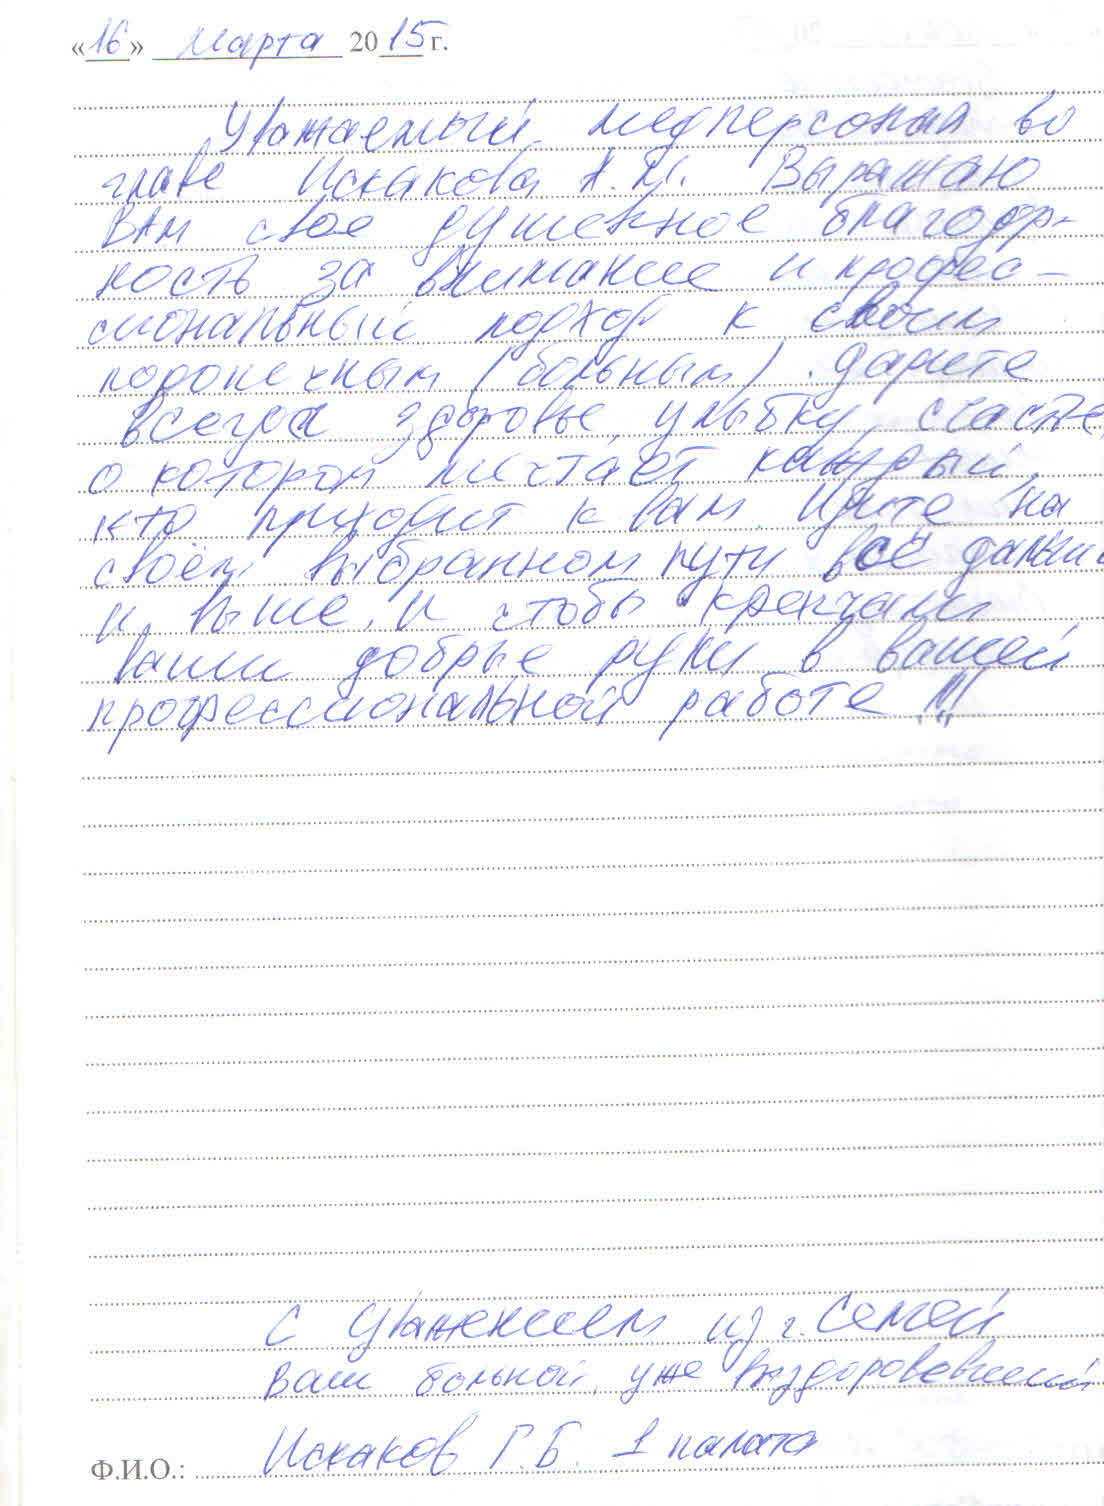 «16» марта 2015 г.
Уважаемый медперсонал во
главе Искакова А.М. Выражаю
Вам свое душевное благодар-
ность за внимание и профес-
сиональный подход к своим
подопечным (больным). Дарите
всегда здоровье, улыбку, счастье,
о котором мечтает каждый,
кто приходит к вам. Идите на
своём выбранном пути всё дальше
и выше, и чтобы крепчали
ваши добрые руки в вашей
профессиональной работе!!!
С уважением из г. Семей
Ваш больной, уже выздоровевший
Ф.И.О.: Искаков Г.Б. 1 палата